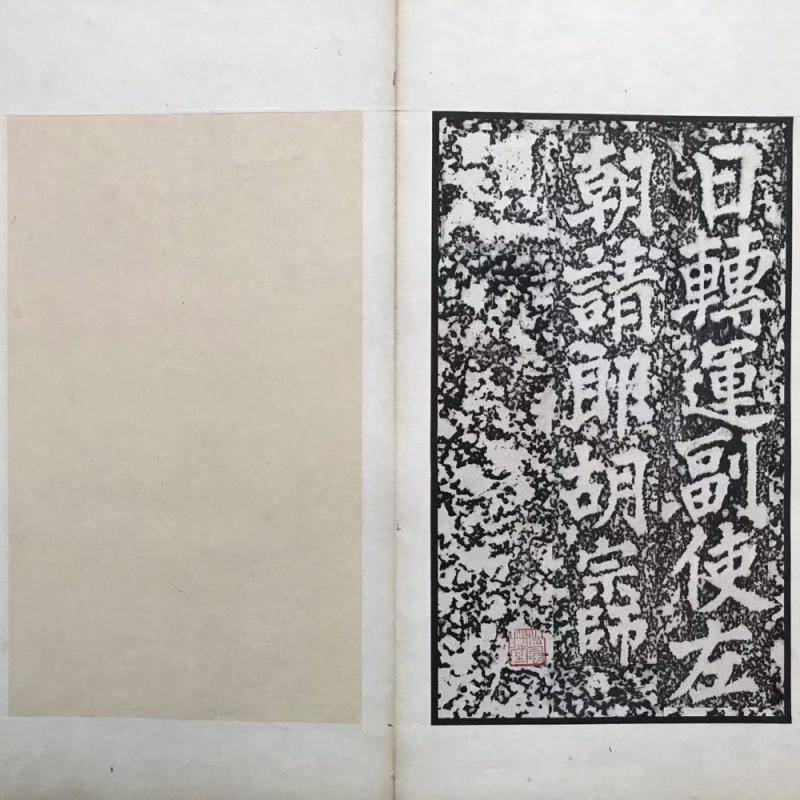 日轉運副使左
朝請郎胡宗師